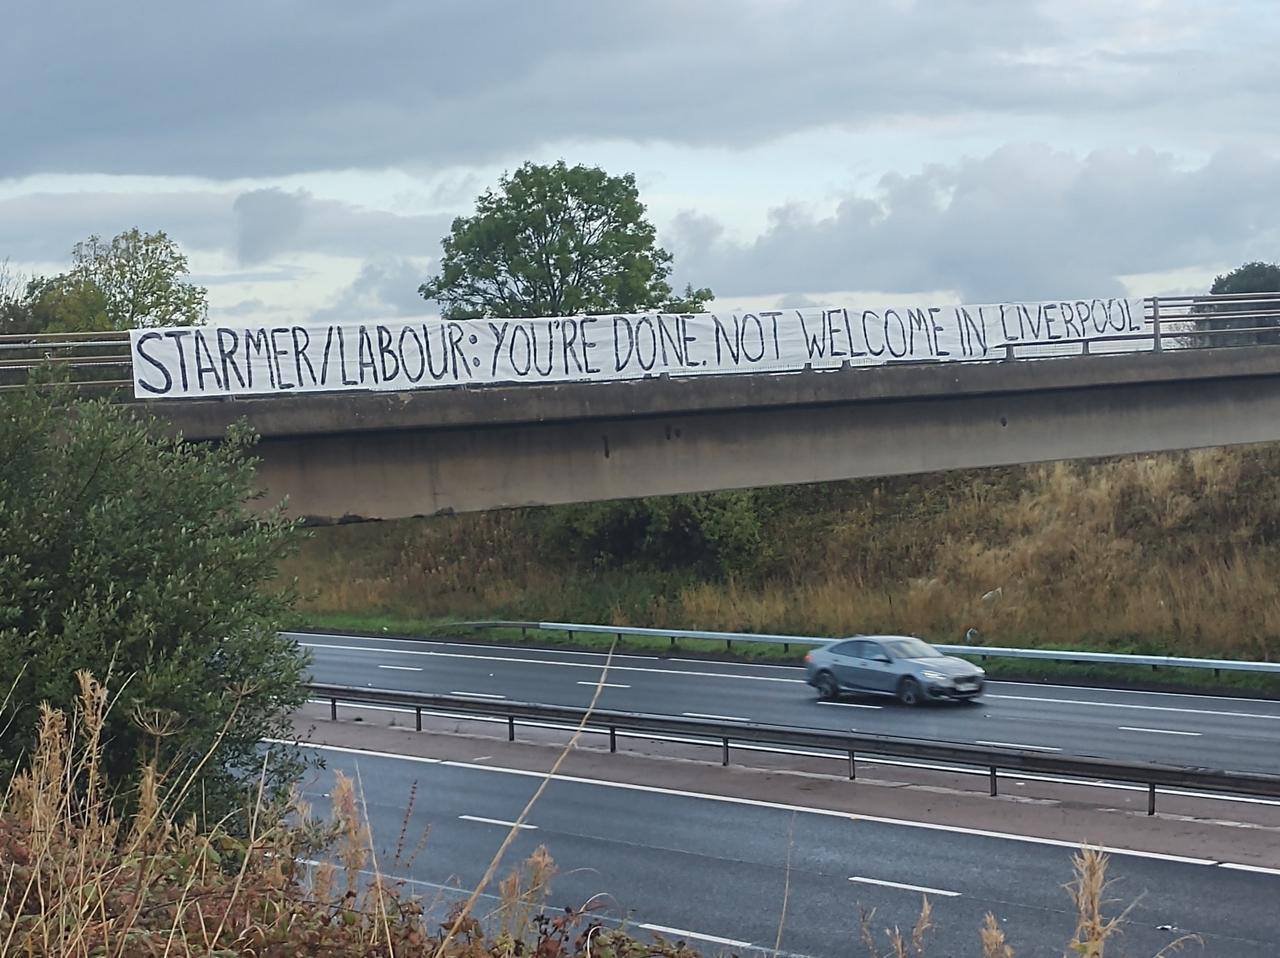 STARMER/LABOUR: YOU'RE DONE. NOT WELCOME IN LIVERPOOL